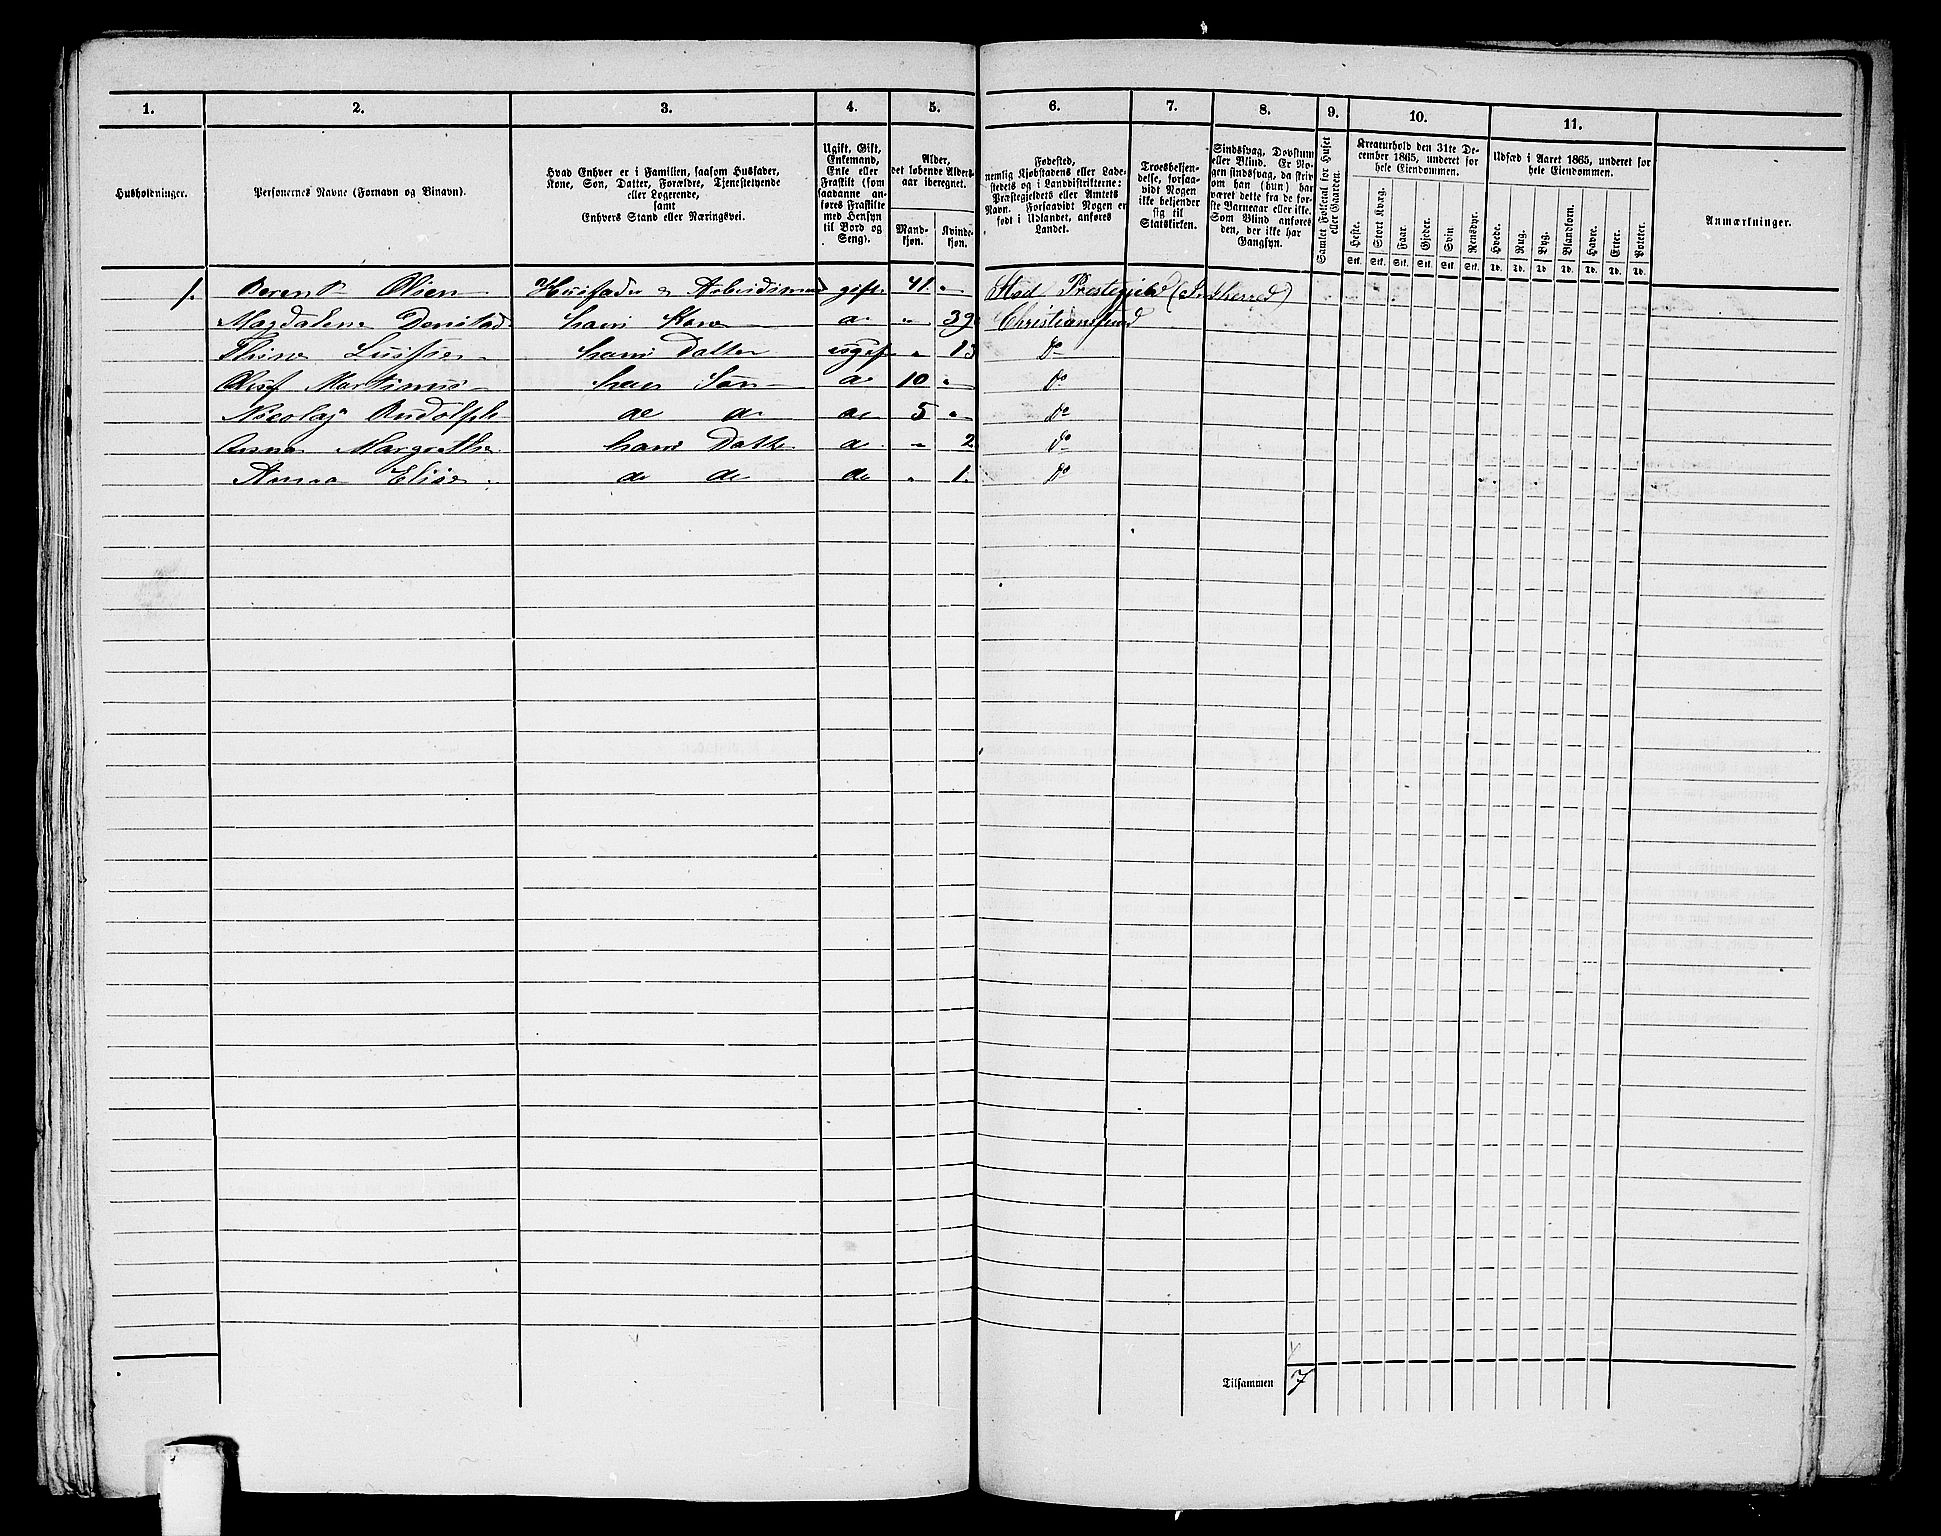 1. 2. 3. 4. 5. 6. 7. 8. 9. 10. 11.
Husholdninger.
Personernes Navne (Fornavn og Binavn).
Hvad Enhver er i Familien, saasom Husfader,
Kone, Søn, Datter, Forældre, Tjenestetyende
eller Logerende,
samt
Enhvers Stand eller Næringsvei.
Ugift, Gift,
Enkemand,
Enke eller
Fraskilt (som
saadanne an-
føres Fraskilte
med Hensyn
til Bord og
Seng).
Alder,
det løbende Alders-
aar iberegnet.
Mand-
kjøn.
Kvinde-
kjøn.
Fødested,
nemlig Kjøbstadens eller Lade-
stedets og i Landdistrikterne:
Præstegjeldets eller Amtets
Navn. Forsaavidt Nogen er
født i Udlandet, anføres
Landet.
Troesbekjen-
delse, forsaa-
vidt Nogen
ikke bekjender
sig til
Statskirken.
Sindssvag, Døvstum
eller Blind. Er No-
gen sindssvag, da skri-
ves om han (hun) har
været dette fra de før-
ste Barneaar eller ikke.
Som Blind anføres
den, der ikke har
Gangsyn.
Samlet Folketal for Huset
eller Gaarden.
Kreaturhold den 31te De-
cember 1865, underet for
hele Eiendommen.
Heste. Stort Kvæg. Faar. Gjeder. Svin. Rensdyr.
Stk. Stk. Stk. Stk. Stk. Stk.
Udsæd i Aaret 1865, underet for
hele Eiendommen.
Hvede. Rug. Byg. Blandkorn. Havre. Erter. Poteter.
Td. Td. Td. Td. Td. Td. Td.
Anmærkninger.
1. Berent Olsen Husfader & Arbeidsmand gift 41. " Stod Prestegjeld
Magdalena hans Kone " 39 Christiansund
hans Datter ugift " 13 Do
Martinus hans Søn 10 " Do
Nicolay Rudolph do do do 5 " Do
Anna Margrethe hans Datter " 2 Do
Anna Elise do do do " 1. Do
Tilsammen 7